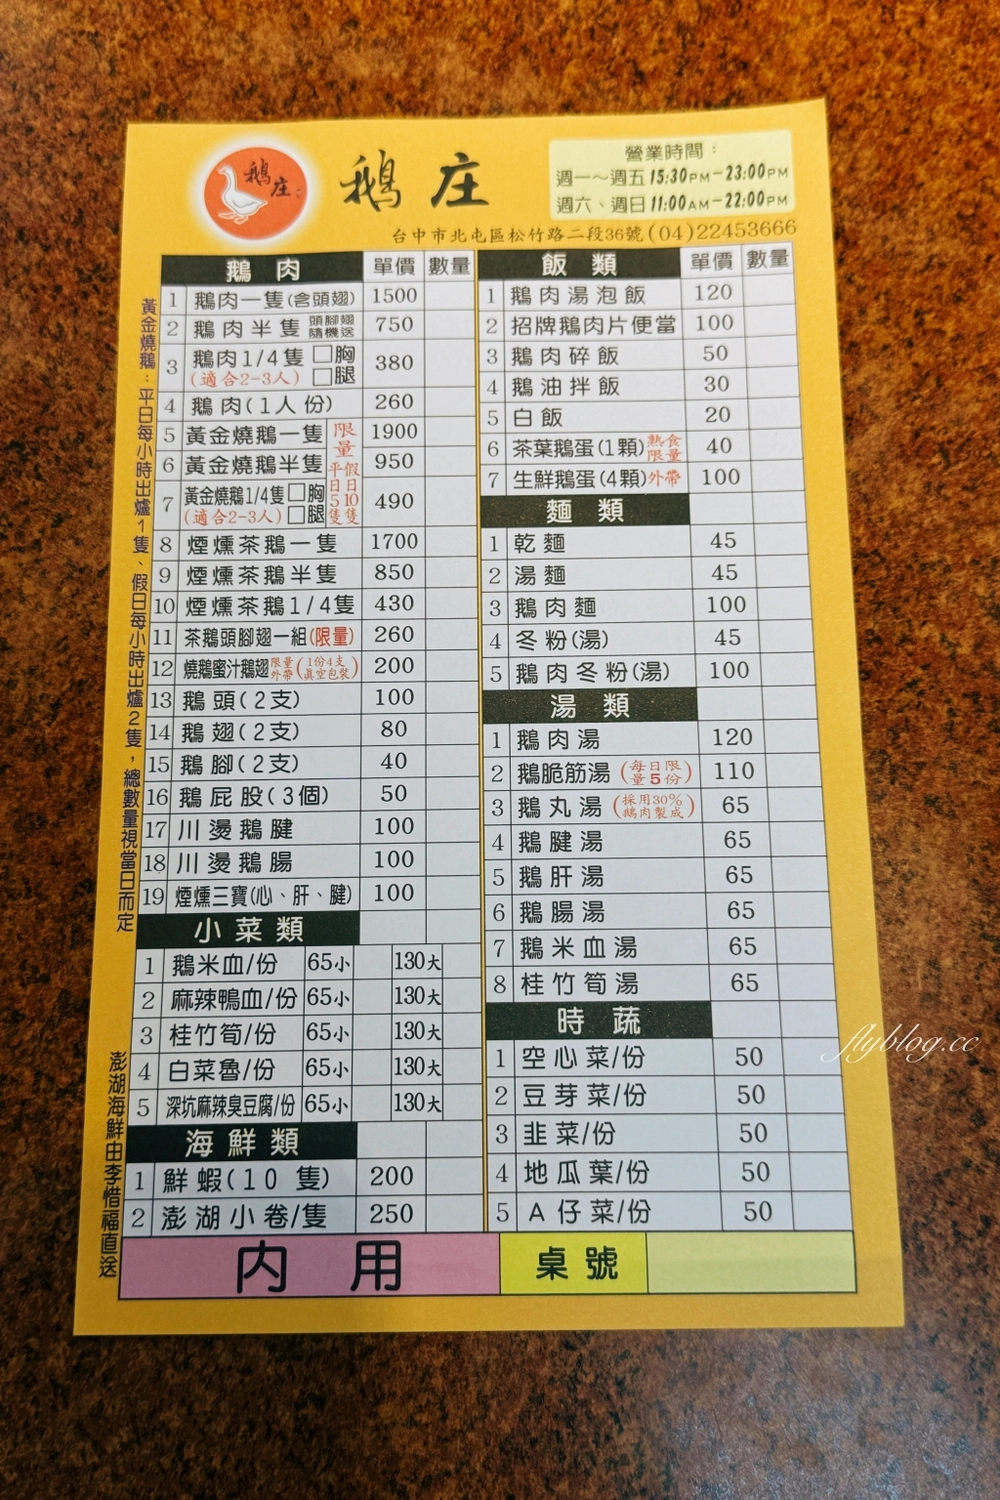 鵝庄
鵝庄
營業時間：
週一～週五 15:30PM－23:00PM
週六、週日 11:00AM－22:00PM
台中市北屯區松竹路二段36號(04)22453666
黃金燒鵝：平日每小時出爐1隻、假日每小時出爐2隻，總數量視當日而定
澎湖海鮮由李惜福直送
鵝肉 單價 數量
1 鵝肉一隻(含頭翅) 1500
2 鵝肉半隻 頭腳翅隨機送 750
3 鵝肉1/4隻 □胸 □腿 (適合2-3人) 380
4 鵝肉(1人份) 260
5 黃金燒鵝一隻 1900
6 黃金燒鵝半隻 950
7 黃金燒鵝1/4隻 □胸 □腿 (適合2-3人) 490
限量
平日5隻
假日10隻
8 煙燻茶鵝一隻 1700
9 煙燻茶鵝半隻 850
10 煙燻茶鵝1/4隻 430
11 茶鵝頭腳翅一組(限量) 260
12 燒鵝蜜汁鵝翅 限量外帶 (1份4支真空包裝) 200
13 鵝頭(2支) 100
14 鵝翅(2支) 80
15 鵝腳(2支) 40
16 鵝屁股(3個) 50
17 川燙鵝腱 100
18 川燙鵝腸 100
19 煙燻三寶(心、肝、腱) 100
小菜類
1 鵝米血/份 65小 130大
2 麻辣鴨血/份 65小 130大
3 桂竹筍/份 65小 130大
4 白菜魯/份 65小 130大
5 深坑麻辣臭豆腐/份 65小 130大
海鮮類
1 鮮蝦(10 隻) 200
2 澎湖小卷/隻 250
飯類 單價 數量
1 鵝肉湯泡飯 120
2 招牌鵝肉片便當 100
3 鵝肉碎飯 50
4 鵝油拌飯 30
5 白飯 20
6 茶葉鵝蛋(1顆) 熟食限量 40
7 生鮮鵝蛋(4顆) 外帶 100
麵類
1 乾麵 45
2 湯麵 45
3 鵝肉麵 100
4 冬粉(湯) 45
5 鵝肉冬粉(湯) 100
湯類
1 鵝肉湯 120
2 鵝脆筋湯 (每日限量5份) 110
3 鵝丸湯 (採用30%鵝肉製成) 65
4 鵝腱湯 65
5 鵝肝湯 65
6 鵝腸湯 65
7 鵝米血湯 65
8 桂竹筍湯 65
時蔬
1 空心菜/份 50
2 豆芽菜/份 50
3 韭菜/份 50
4 地瓜葉/份 50
5 A仔菜/份 50
內用 桌號
flyblog.cc